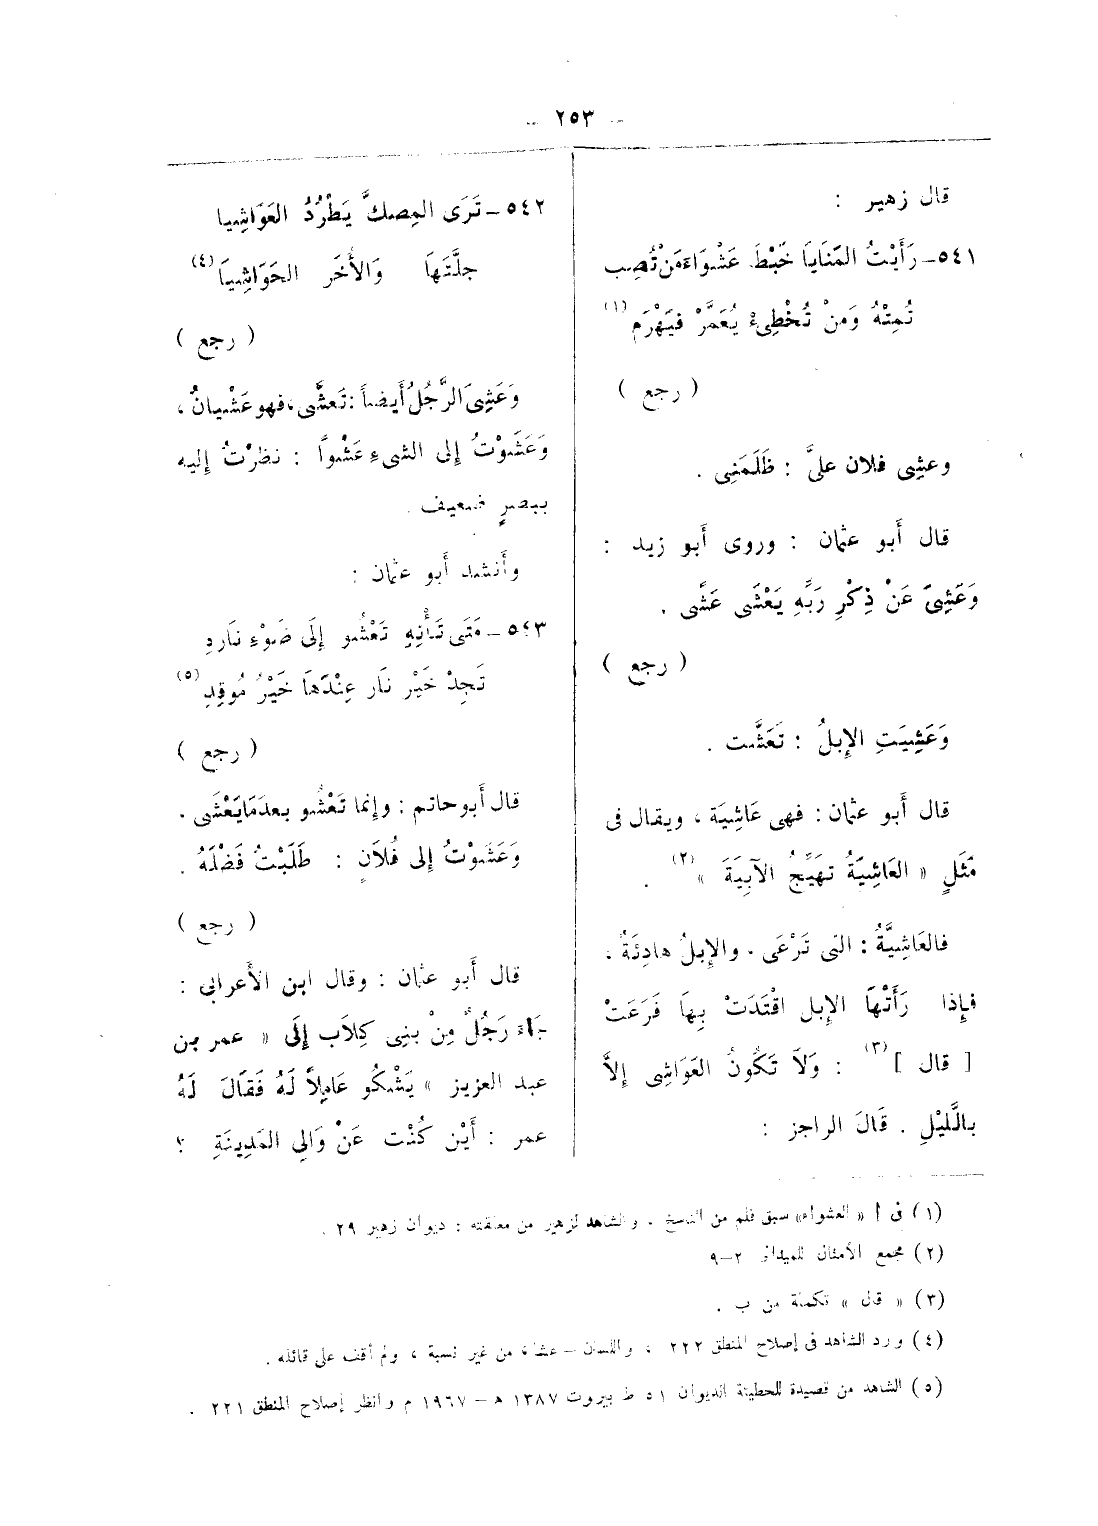 - ٢٥٣ -
قال زهير :
٥٤١ - رَأَيْتُ المَنَايَا خَبْطَ عَشْوَاءَ مَنْ تُصِب
تُمِتْهُ وَمنْ تُخْطِىءْ يُعَمَّرْ فَيَهْرَمِ (١)
( رجع )
وعشِى فلان علىَّ : ظَلَمَنِى .
قال أَبو عثمان : وروى أَبو زيد :
وَعَشِىَ عَنْ ذِكْرِ رَبِّهِ يَعْشَى عَشًى .
( رجع )
وَعَشِيَتِ الإِبلُ : تَعَشَّت .
قال أَبو عثمان : فهى عَاشِيَة ، ويقال فى
مَثَلٍ « العَاشِيَةُ تهَيِّجُ الآبِيَةَ » (٢) .
فالعَاشِيَةُ : التى تَرْعَى . والإِبلُ هادِئَةٌ ،
فإِذا رَأَتْهَا الإِبل اقْتَدَتْ بِهَا فَرَعَتْ
[ قال ] (٣) : وَلاَ تَكُونُ العَوَاشِى إِلاَّ
بالَّليْلِ . قَالَ الراجز :
٥٤٢ - تَرَى المِصكَّ يَطْرُدُ العَوَاشِيا
جلَّتَهَا وَالأُخَر الحَوَاشِيَا (٤)
( رجع )
وَعَشِىَ الرَّجُلُ أَيضاً : تَعشَّى ، فهو عَشْيانٌ ،
وَعَشَوْتُ إِلى الشىءِ عَشْوًا : نظرْتُ إِليه
ببصرٍ ضعيف .
وأَنشد أَبو عثمان :
٥٤٣ - مَتَى تَأْتِهِ تَعْشُو إِلَى ضَوْءِ نَارِهِ
تَجِدْ خَيْر نَار عِنْدَهَا خَيْرُ مُوقِدِ (٥)
( رجع )
قال أَبو حاتم : وإِنما تَعْشُو بعدَمَا يَعْشَى .
وَعَشَوْتُ إِلى فُلاَنٍ : طَلَبْتُ فَضْلَهُ .
( رجع )
قال أَبو عثمان : وقال ابن الأَعرابى :
جَاءَ رَجُلٌ مِنْ بنِى كِلاَب إِلَى « عمر بن
عبد العزيز » يَشْكُو عَامِلاً لَهُ فَقَالَ لَهُ
عمر : أَيْن كُنْت عَنْ وَالِى المَدِينَةِ ؟
(١) فى أ « العشواء » سبق قلم من الناسخ . والشاهد لزهير من معلقته : ديوان زهير ٢٩ .
(٢) مجمع الأمثال للميدانى ٢ - ٩
(٣) « قال » تكملة من ب .
(٤) ورد الشاهد فى إصلاح المنطق ٢٢٢ ، واللسان - عشا ، من غير نسبة ، ولم أقف على قائله .
(٥) الشاهد من قصيدة للحطيئة الديوان ٥١ ط بيروت ١٣٨٧ ه - ١٩٦٧ م وانظر إصلاح المنطق ٢٢١ .